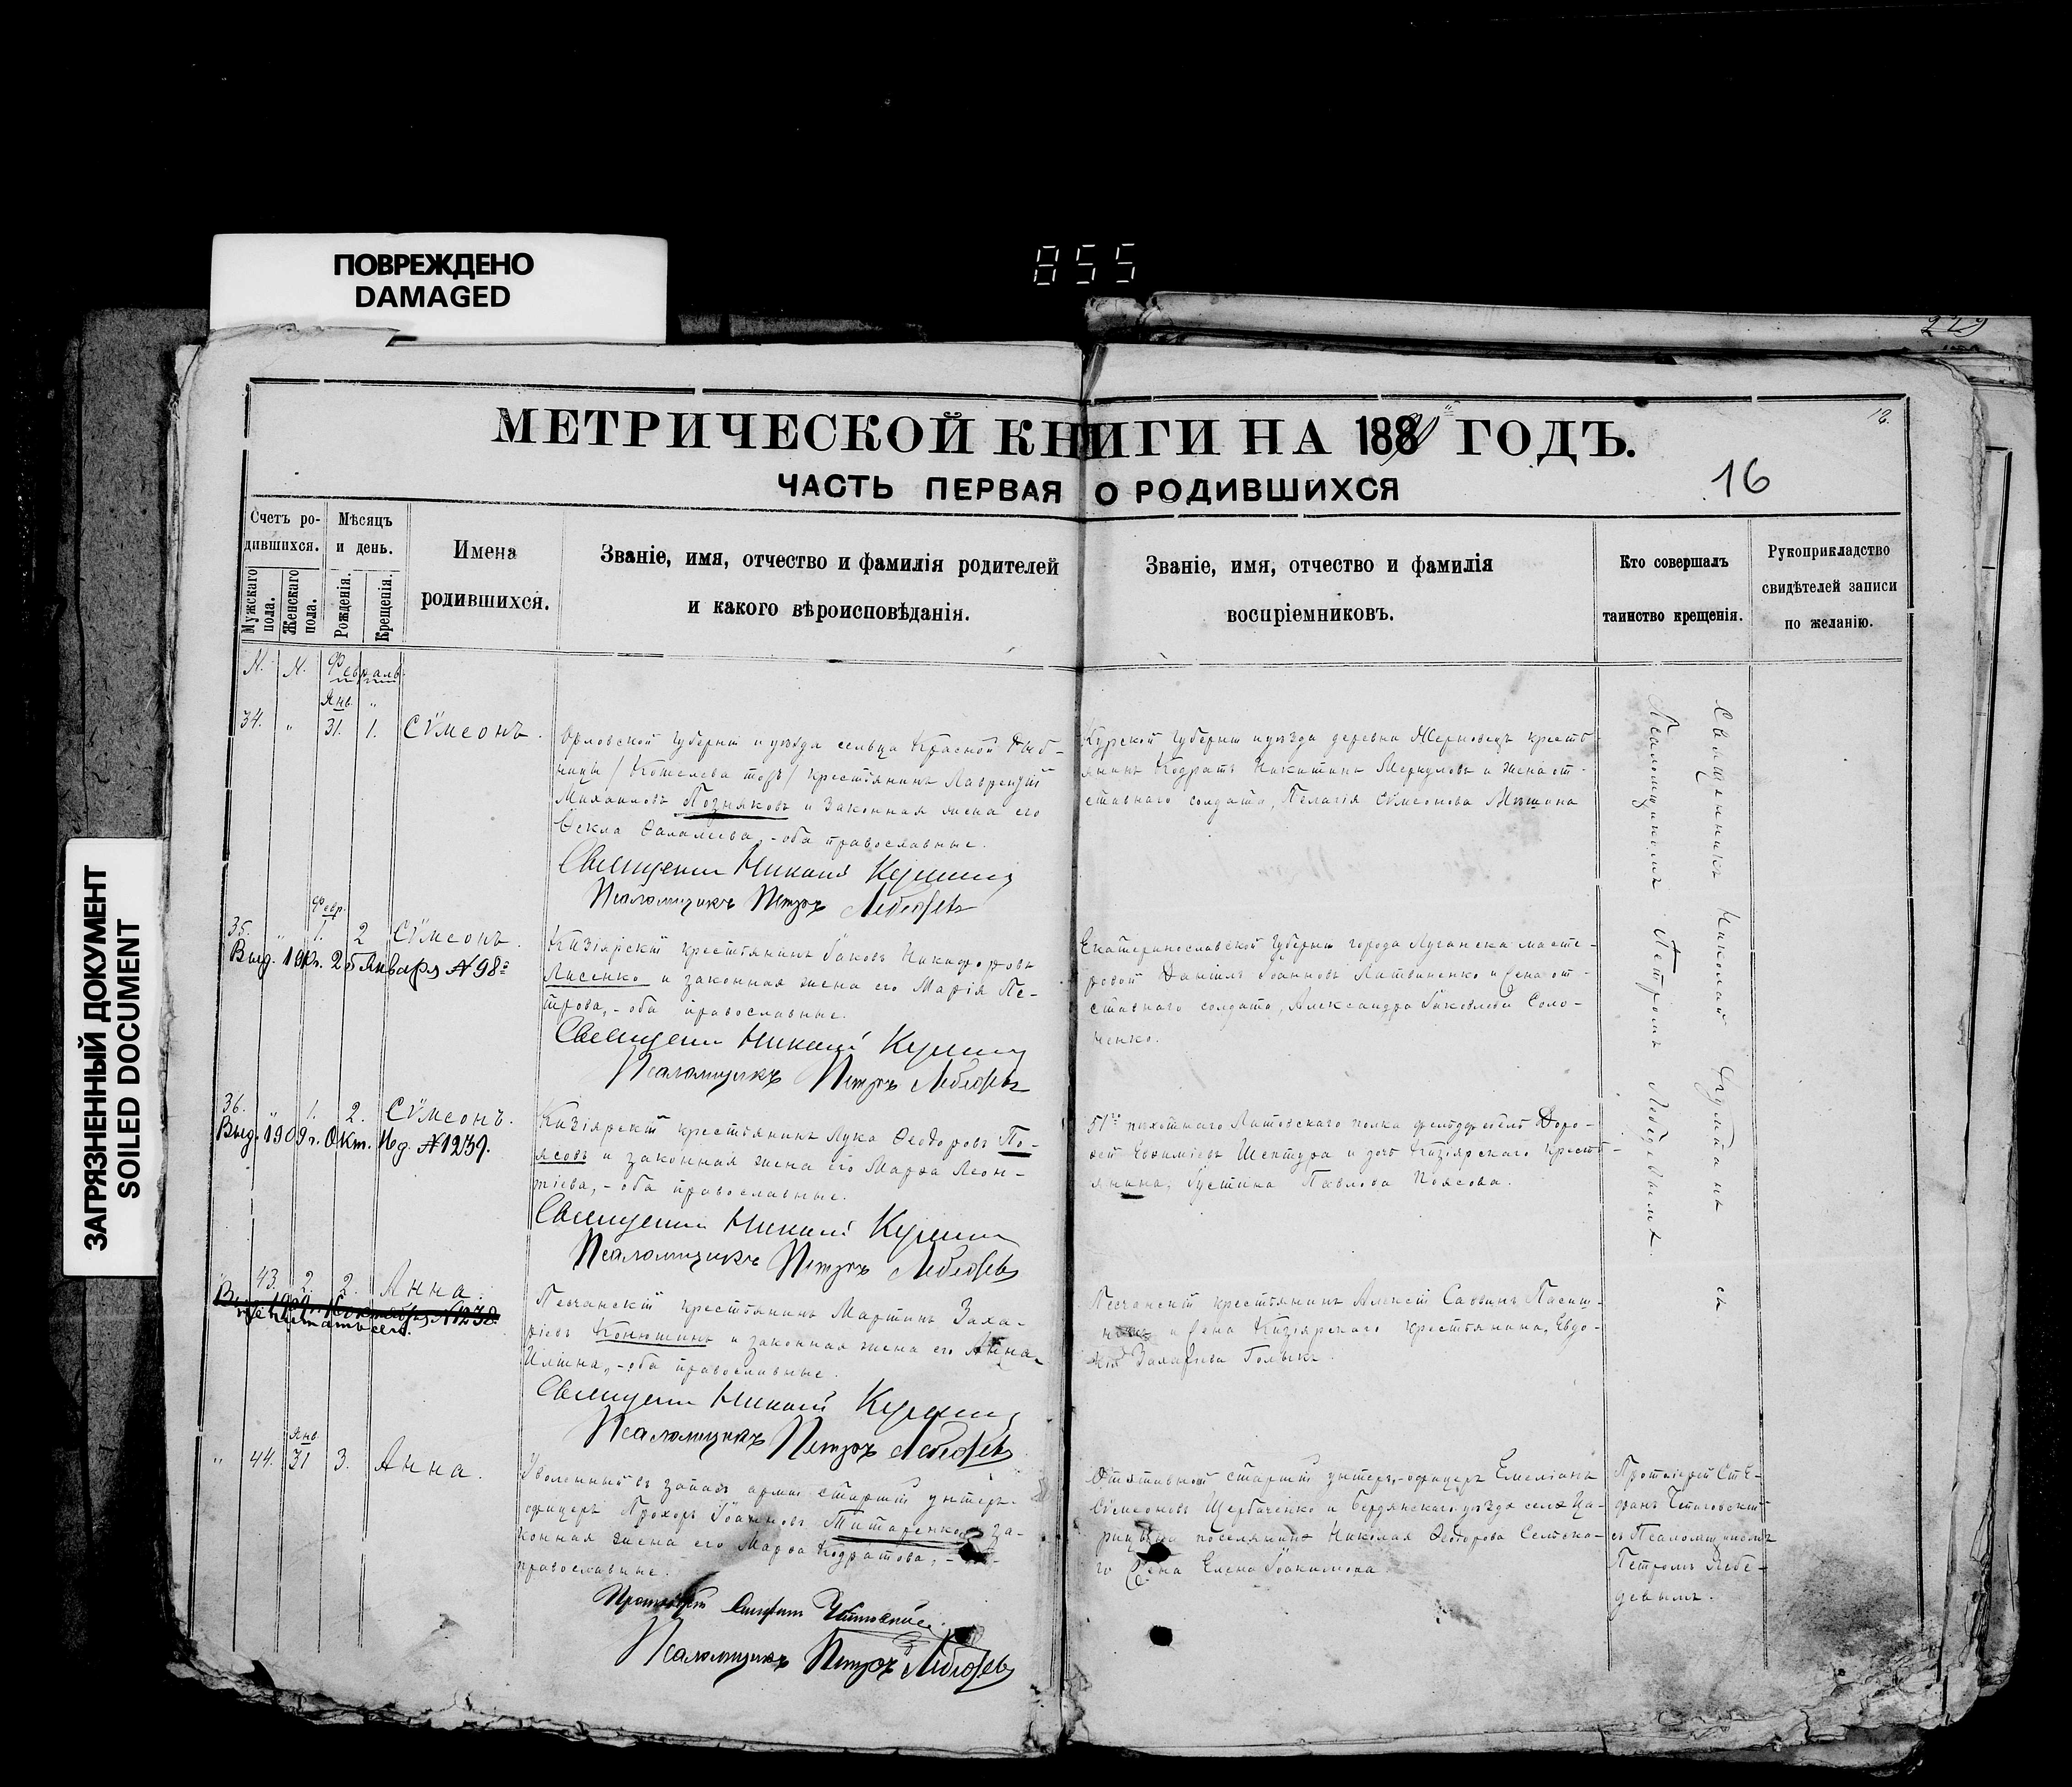 ПОВРЕЖДЕНО
DAMAGED
855
229
ЗАГРЯЗНЕННЫЙ ДОКУМЕНТ
SOILED DOCUMENT
МЕТРИЧЕСКОЙ КНИГИ НА 188 ГОДЪ.
12.
16
ЧАСТЬ ПЕРВАЯ О РОДИВШИХСЯ
Счетъ ро-
дившихся.
Мужскаго пола.
Женскаго пола.
Мѣсяцъ
и день.
Рожденія.
Крещенія.
Имена
родившихся.
Званіе, имя, отчество и фамилія родителей
и какого вѣроисповѣданія.
Званіе, имя, отчество и фамилія
воспріемниковъ.
Кто совершалъ
таинство крещенія.
Рукоприкладство
свидѣтелей записи
по желанію.
М. М. Февраль
Янв. "
34. " 31. 1. Сѵмеонъ.
Орловской губерніи и уѣзда сельца Красной
/ Кошелева тожъ / крестьянинъ Лаврентій
Михаиловъ Позняковъ и законная жена его
Ѳекла Ѳалалѣева, - оба православные.
Священникъ Николай
Псаломщикъ Петръ Лебедевъ
Курской губерніи и уѣзда деревни Жерновецъ кресть-
янинъ Кодратъ Никитинъ Меркуловъ и жена от-
ставнаго солдата, Пелагія Сѵмеонова
Священникъ Николай съ
Псаломщикомъ Петромъ Лебедевымъ.
Февр.
35. " 1. 2 Сѵмеонъ.
Выд. 25 Января № 98
Кизіярскій крестьянинъ Іаковъ Никифоровъ
Лисенко и законная жена его Марія Пе-
трова, - оба православные.
Священникъ Николай
Псаломщикъ Петръ Лебедевъ
Екатеринославской губерніи города Луганска масте-
ровой Даніилъ Іоанновъ Литвиненко и жена от-
ставнаго солдата, Александра Іаковлева Соло-
ненко.
36. " 1. 2. Сѵмеонъ.
Выд. 1909 г. Окт. 16 д. № 1239.
Кизіярскій крестьянинъ Лука Ѳеодоровъ По-
ясовъ и законная жена его Марѳа Леон-
тіева, - оба православные.
Священникъ Николай
Псаломщикъ Петръ Лебедевъ
51го пѣхотнаго Литовскаго полка фельдфебель Доро-
ѳей Евѳиміевъ Шектура и дочь Кизіярскаго кресть-
янина, Іустина Павлова Поясова.
" 43. 2. 2. Анна.
Песчанскій крестьянинъ Мартинъ Заха-
ріевъ Конюшинъ и законная жена его Анна
Иліина, - оба православные.
Священникъ Николай
Псаломщикъ Петръ Лебедевъ
Песчанскій крестьянинъ Алексій Саввинъ
и жена Кизіярскаго крестьянина, Евдо-
кія Захаріева
Янв.
" 44. 31 3. Анна.
Уволенный въ запасъ арміи старшій унтеръ-
офицеръ Прохоръ Іоанновъ Титаренко и за-
конная жена его Марѳа Кодратова, -
православные.
Протоіерей Стефанъ
Псаломщикъ Петръ Лебедевъ
Отставной старшій унтеръ-офицеръ Емеліанъ
Сѵмеоновъ Щербаченко и Бердянскаго уѣзда села Ца-
рицына поселянина Николая Ѳеодорова Сельска-
го жена Елена Іоакимова.
Протоіерей Сте-
фанъ
съ Псаломщикомъ
Петромъ Лебе-
девымъ.